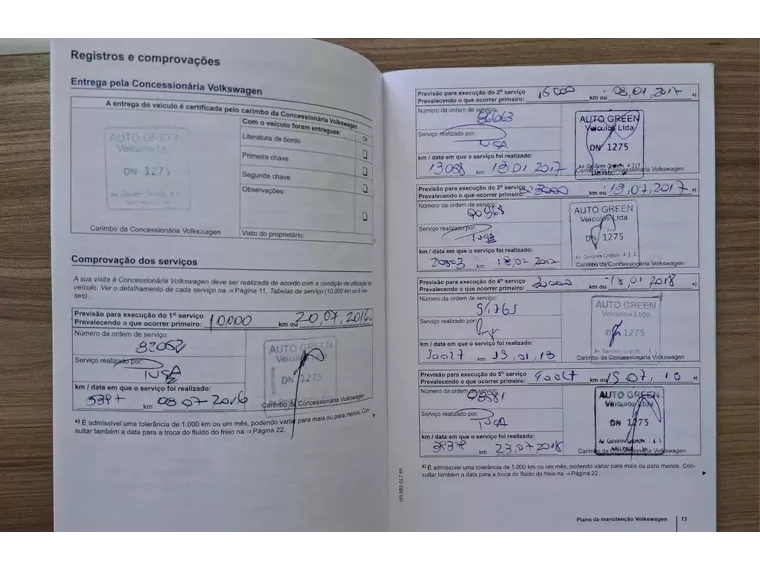 Registros e comprovações
Entrega pela Concessionária Volkswagen
A entrega do veículo é certificada pelo carimbo da Concessionária Volkswagen
AUTO GREEN
Veículos Ltda
DN 1275
Carimbo da Concessionária Volkswagen
Com o veículo foram entregues:
Literatura de bordo
Primeira chave
Segunda chave
Observações:
Visto do proprietário:
Comprovação dos serviços
A sua visita à Concessionária Volkswagen deve ser realizada de acordo com a condição de utilização do
veículo. Ver o detalhamento de cada serviço na ⇒ Página 11, Tabelas de serviço (10.000 km ou 6 me-
ses).
Previsão para execução do 1º serviço
Prevalecendo o que ocorrer primeiro: 10.000 km ou 20,07,2016.
Número da ordem de serviço:
Serviço realizado por:
km / data em que o serviço foi realizado:
km 08 07 2016
AUTO GREEN
Veículos Ltda
DN 1275
Carimbo da Concessionária Volkswagen
a) É admissível uma tolerância de 1.000 km ou um mês, podendo variar para mais ou para menos. Con-
sultar também a data para a troca do fluido do freio na ⇒ Página 22.
Previsão para execução do 2º serviço
Prevalecendo o que ocorrer primeiro: 15000 km ou 08,01,2017 a)
Número da ordem de serviço:
86063
Serviço realizado por:
km / data em que o serviço foi realizado:
13068 km 13 01 2017
AUTO GREEN
Veículos Ltda
DN 1275
Carimbo da Concessionária Volkswagen
Previsão para execução do 3º serviço
Prevalecendo o que ocorrer primeiro: km ou 13,07,2017 a)
Número da ordem de serviço:
90968
Serviço realizado por:
km / data em que o serviço foi realizado:
km 18,07 2017
AUTO GREEN
Veículos Ltda
DN 1275
Carimbo da Concessionária Volkswagen
Previsão para execução do 4º serviço
Prevalecendo o que ocorrer primeiro: 30000 km ou 18,01,2018 a)
Número da ordem de serviço:
94765
Serviço realizado por:
km / data em que o serviço foi realizado:
30027 km 13,01,18
AUTO GREEN
Veículos Ltda
DN 1275
Carimbo da Concessionária Volkswagen
Previsão para execução do 5º serviço
Prevalecendo o que ocorrer primeiro: 40027 km ou 13 07, 18 a)
Número da ordem de serviço:
Serviço realizado por:
km / data em que o serviço foi realizado:
km 23,07 2018
AUTO GREEN
Veículos Ltda
DN 1275
Carimbo da Concessionária Volkswagen
a) É admissível uma tolerância de 1.000 km ou um mês, podendo variar para mais ou para menos. Con-
sultar também a data para a troca do fluido do freio na ⇒ Página 22.
Plano de manutenção Volkswagen 13